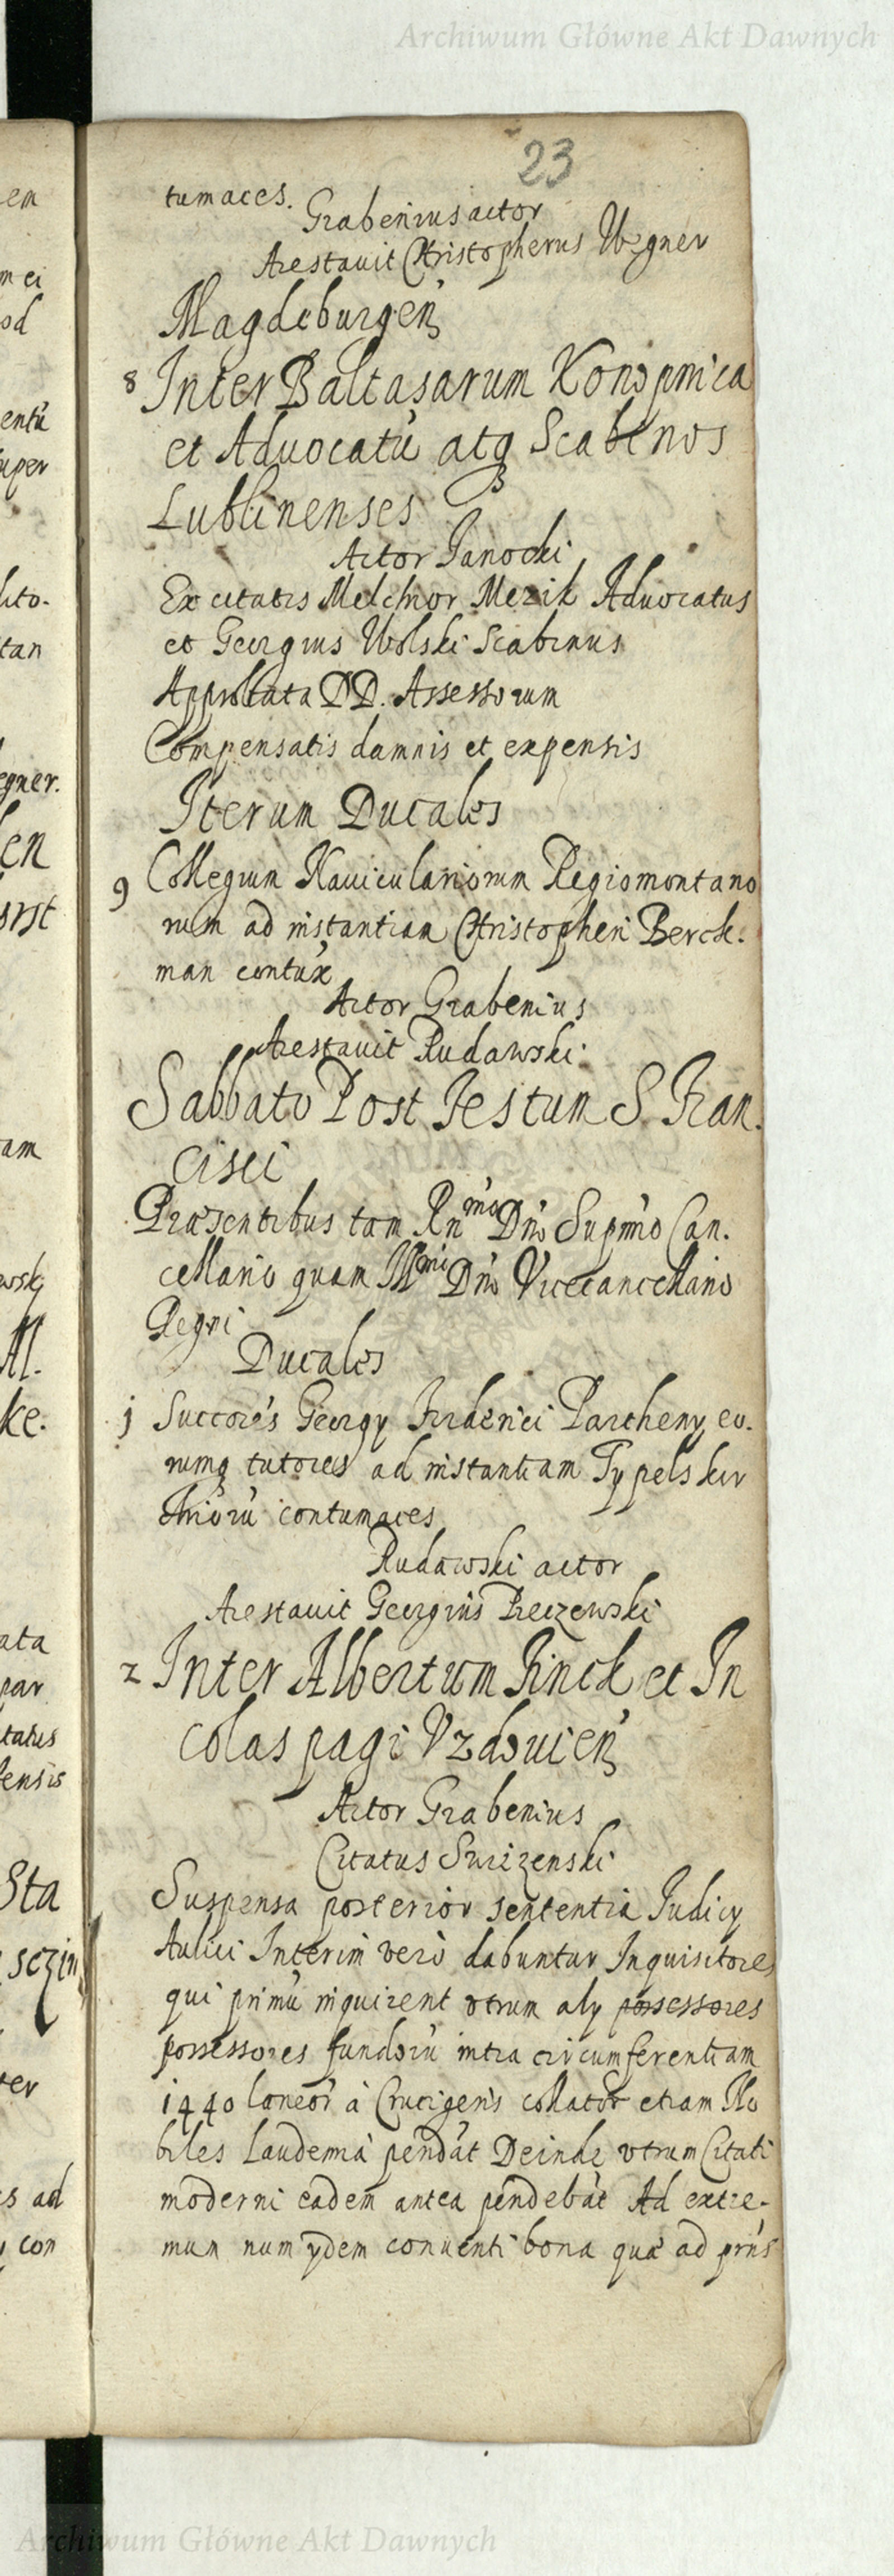 Archiwum Główne Akt Dawnych
23
tumaces.
Grabenius actor
Arestauit Christopherus Wegner
Magdeburgen
8 Inter Baltasarum Konopnica
et Aduocatū atq Scabinos
Lublinenses
Actor Janocki
Ex citatis Melchior Mezik Aduocatus
et Georgius Wolski Scabinus
Approbata DD. Assessorum
Compensatis damnis et expensis
Iterum Ducales
9 Collegium Nauiculariorum Regiomontano
rum ad instantiam Christopheri Berck.
man contux
Actor Grabenius
Arestauit Rudawski
Sabbato Post Festum S. Fran.
cisci
Præsentibus tam Rnmo Dno Supmo Can.
cellario quam Illmi Dno Vicecancellario
Regni
Ducales
j Succores Georgy Friderici Partheny eo.
rumq tutores ad instantiam Typelskir
chiorū contumaces
Rudawski actor
Arestauit Georgius Reczewski
2 Inter Albertum Finck et In
colas pagi Vzdouien
Actor Grabenius
Citatus Swizenski
Suspensa posterior sententia Iudicy
Aulici Interim verò dabuntur Inquisitores
qui primū inquirent vtrum aly possessores
possessores fundorū intra circumferentiam
1440 laneor à Crucigeris collator etiam No
biles Laudemia pendāt Deinde vtrum Citati
moderni eadem antea pendebāt Ad extre-
mum num ydem conuenti bona qua ad prius
em
m ei
od
entū
uper
lito.
tan
egner.
en
orst
am
ewskj
Al.
ke.
ata
par
tatus
pensis
Sta
sczin
ter
s ad
con
Archiwum Główne Akt Dawnych